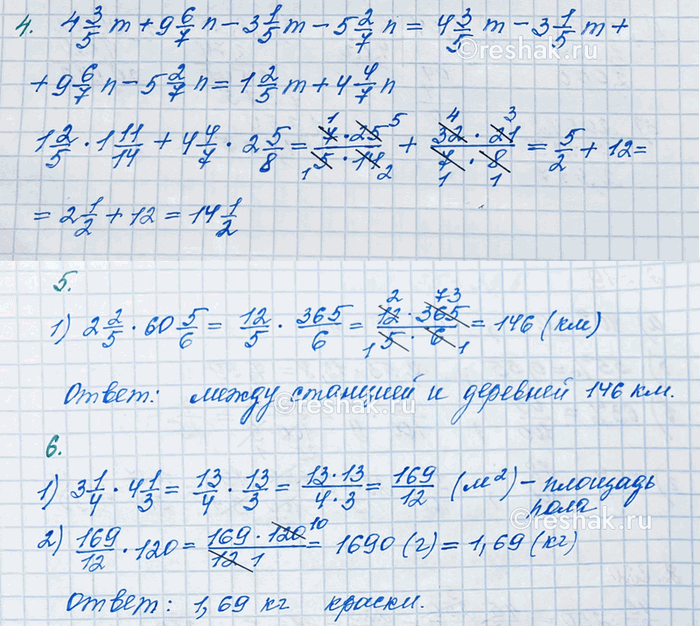 4. 4 3/5 m + 9 6/7 n - 3 1/5 m - 5 2/7 n = 4 3/5 m - 3 1/5 m +
+ 9 6/7 n - 5 2/7 n = 1 2/5 m + 4 4/7 n
1 2/5 · 1 11/14 + 4 4/7 · 2 5/8 = (7 · 25)/(5 · 14) + (32 · 21)/(7 · 8) = 5/2 + 12 =
= 2 1/2 + 12 = 14 1/2
5.
1) 2 2/5 · 60 5/6 = 12/5 · 365/6 = (12 · 365)/(5 · 6) = 146 (км)
Ответ: между станцией и деревней 146 км.
6.
1) 3 1/4 · 4 1/3 = 13/4 · 13/3 = (13 · 13)/(4 · 3) = 169/12 (м²) - площадь
пола
2) 169/12 · 120 = (169 · 120)/12 = 1690 (г) = 1,69 (кг)
Ответ: 1,69 кг краски.
© reshak.ru